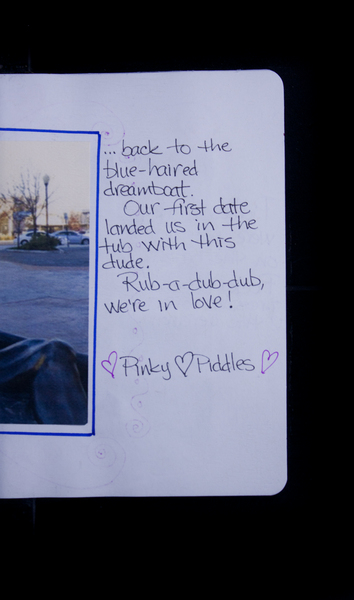 ... back to the
blue-haired
dreamboat.
Our first date
landed us in the
tub with this
dude.
Rub-a-dub-dub,
we're in love!
♡ Pinky ♡ Piddles ♡